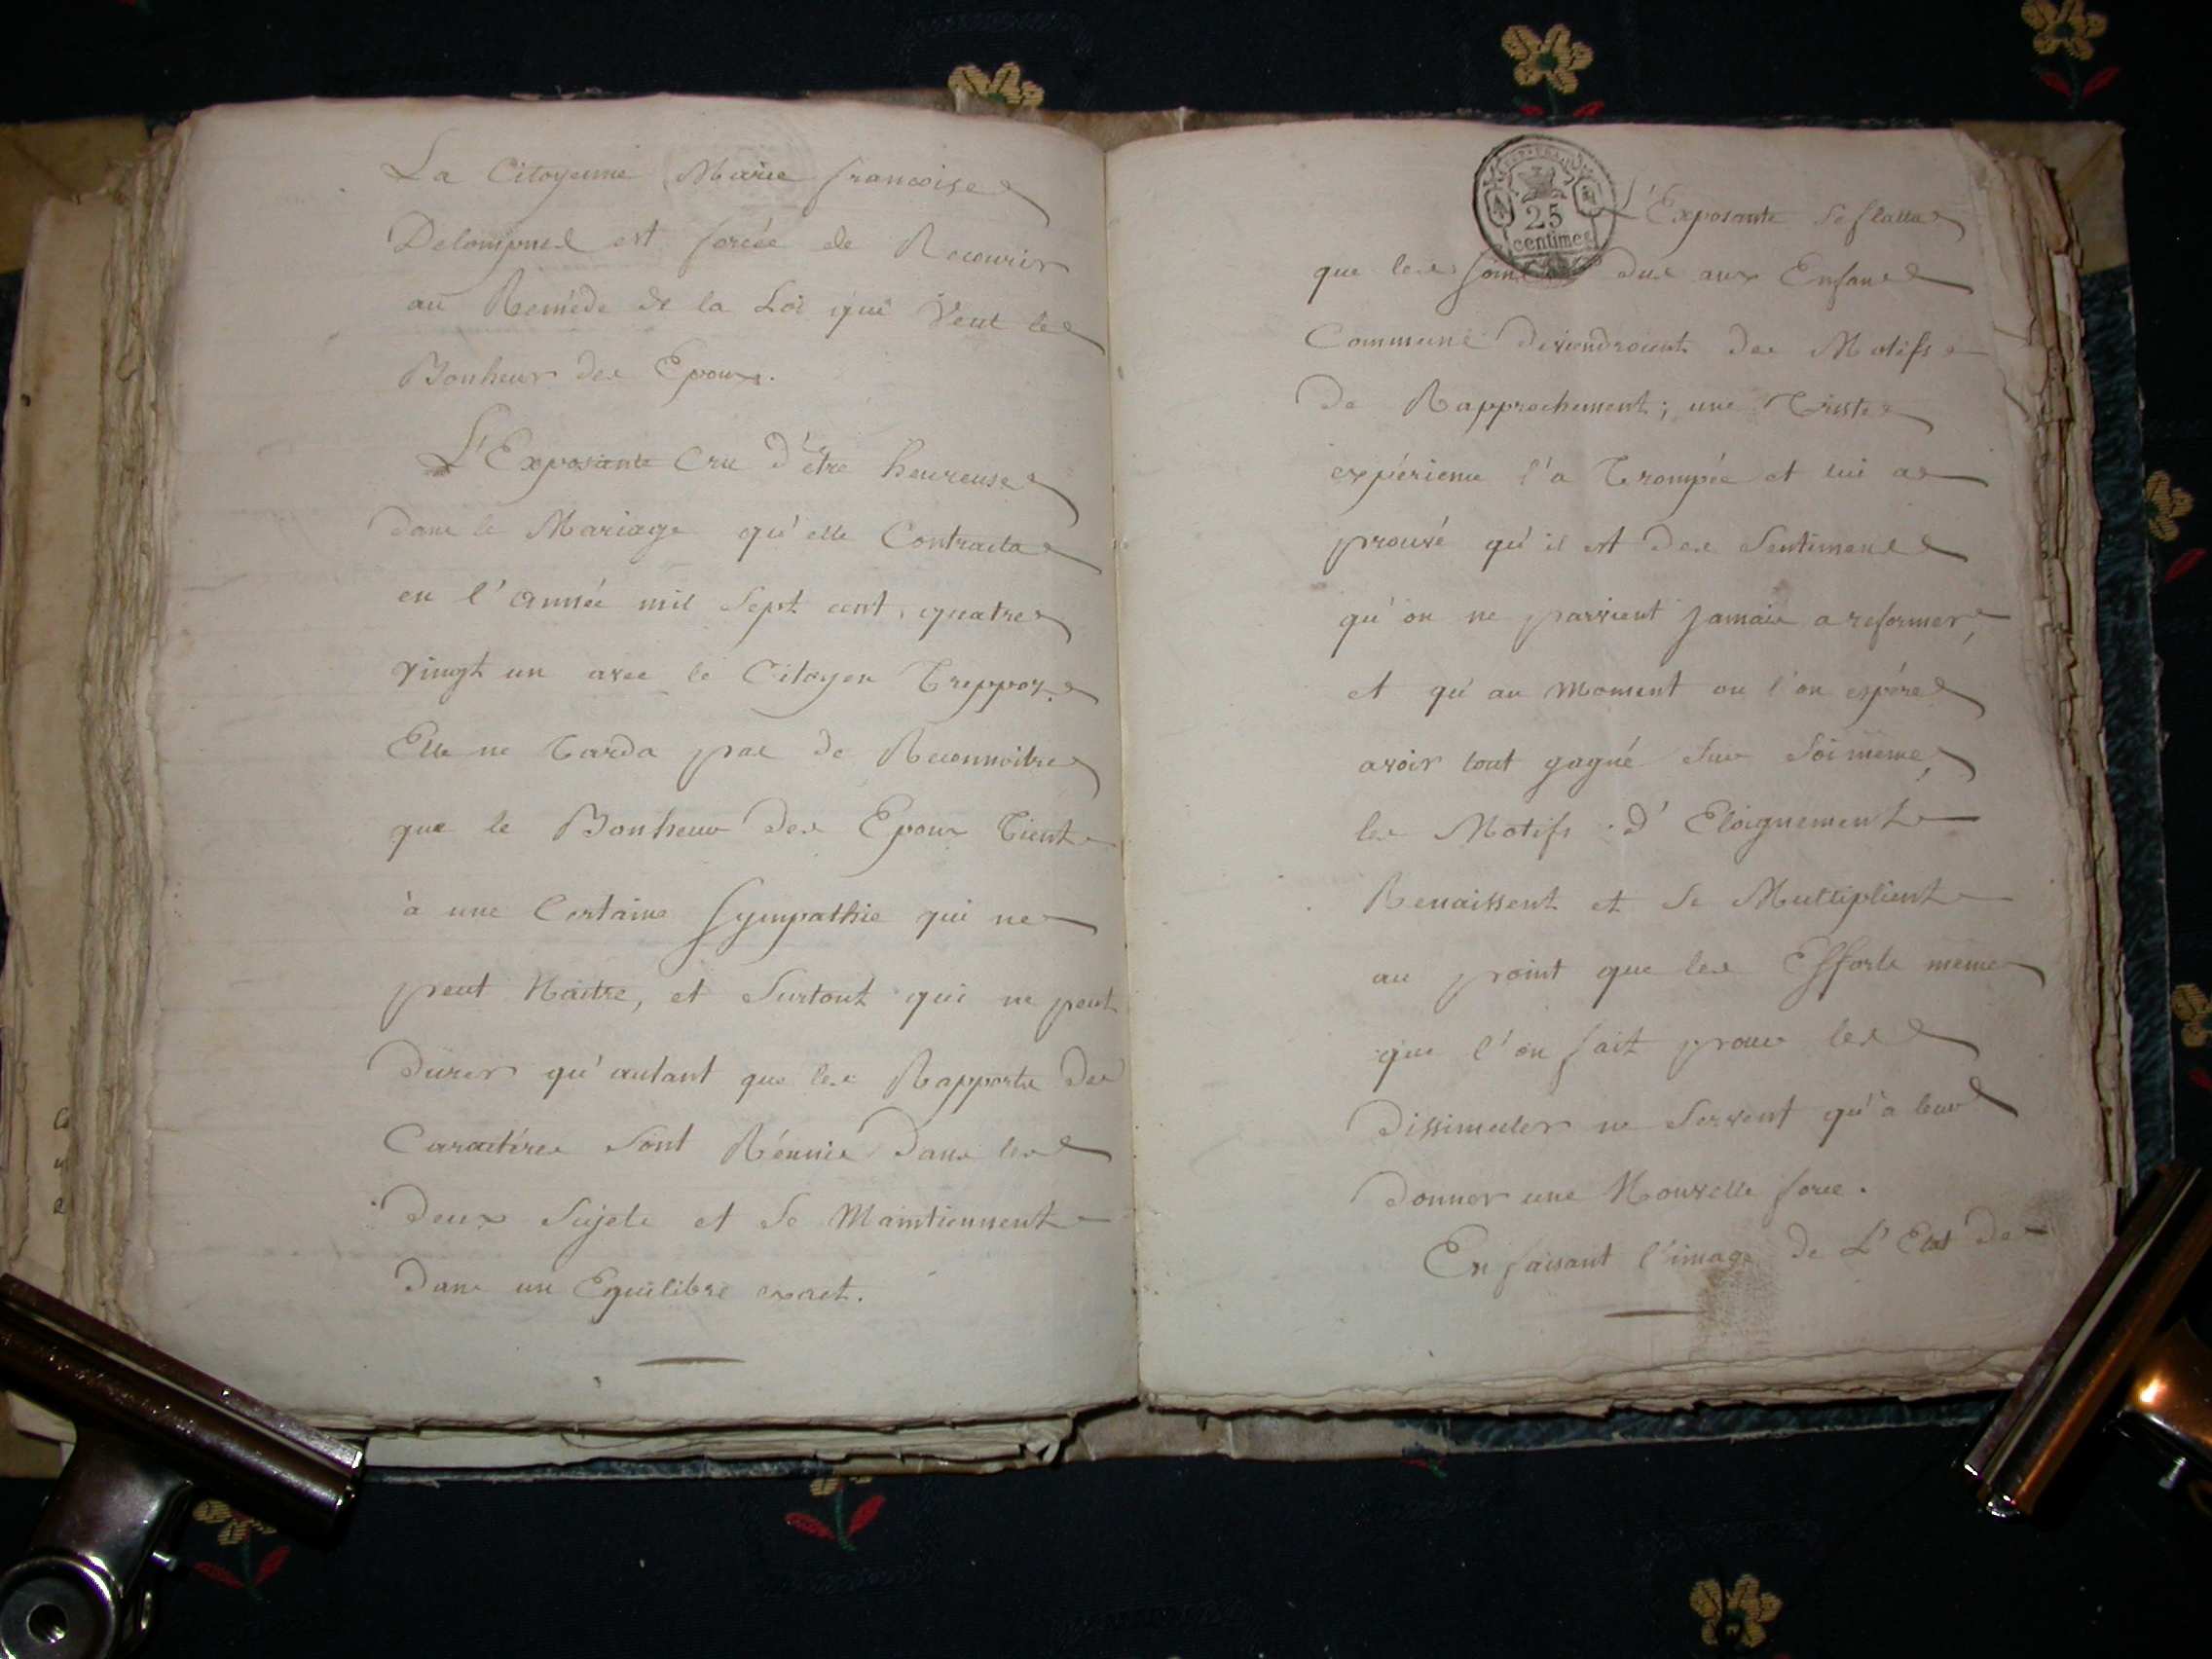 La Citoyenne Marie francoise
est forcée de Recourir
au Remede de la Loi qui Veut le
Bonheur des Epoux.
L'Exposante Cru d'être heureuse
dans le Mariage qu'elle Contracta
en l'année mil Sept cent quatre
vingt un avec le Citoyen Treppoz.
Elle ne Tarda pas de Reconnoitre
que le Bonheur des Epoux Tient
à une Certaine Sympathie qui ne
peut Naitre, et Surtout qui ne peut
Durer qu'autant que les Rapports des
Caractéres Sont Réunis Dans les
Deux Sujets et Se Maintiennent
Dans un Equilibre exact.
25
centimes
L'Exposante Se flatta
que les Soins dus aux Enfans
Communs deviendroient des Motifs
De Rapprochement; une Triste
expérience l'a Trompée et lui a
prouvé qu'il est Des Sentimens
qu'on ne parvient Jamais a reformer,
et qu'au Moment ou l'on espére
avoir tout gagné Sur Soi même,
les Motifs d'Eloignement
Renaissent et Se Multiplient
au point que les Efforts même
que l'on fait pour les
Dissimuler ne Servent qu'à leur
Donner une Nouvelle force.
En faisant l'image de L'Etat De